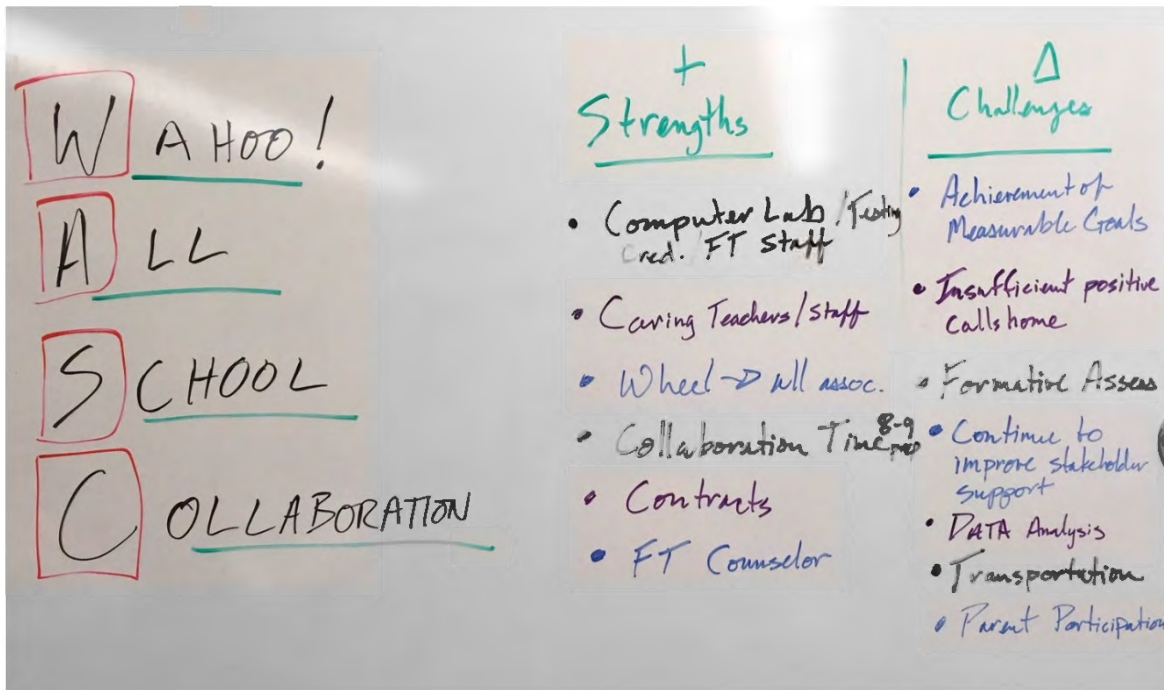 WAHOO!
ALL
SCHOOL
COLLABORATION
+
Strengths
• Computer Lab / Testing
Cred. / FT Staff
• Caring Teachers/Staff
• Wheel → all assoc.
• Collaboration Time 8-9 prep
• Contracts
• FT Counselor
Δ
Challenges
• Achievement of
Measurable Goals
• Insufficient positive
calls home
• Formative Assess
• Continue to
improve stakeholder
support
• DATA Analysis
• Transportation
• Parent Participation